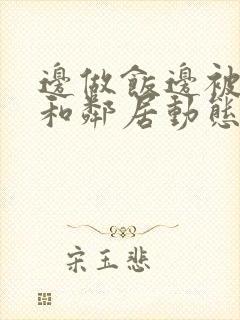 邊做飯邊被
和鄰居動態
宋玉悲